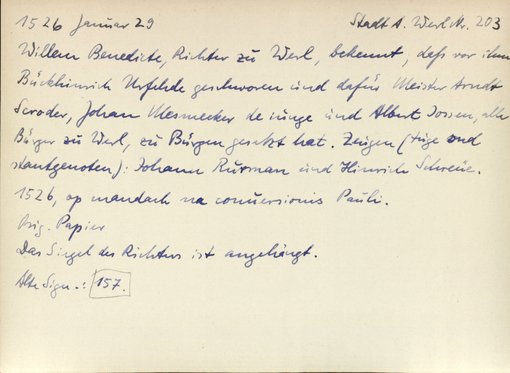 1526 Januar 29 Stadt A. Werl Nr. 203
Willem Benedicte, Richter zu Werl, bekennt, dass vor ihm
Bückhinrich Urfehde geschworen und dafür Meister Arndt
Scroder, Johan Mesmecker de junge und Albert Jossen, alle
Bürger zu Werl, zu Bürgen gesetzt hat. Zeugen (tuge ond
stantgenoten): Johann Rurman und Hinrich
1526, op mandach na conversionis Pauli.
Orig. Papier
Das Siegel des Richters ist angehängt.
Alte Sign.: 157.